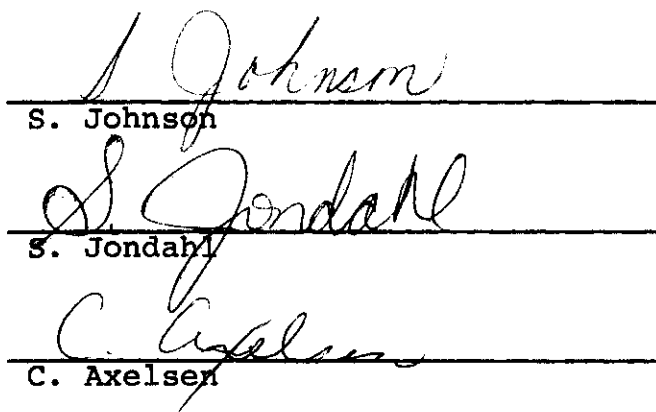 S Johnson
S. Johnson
S. Jondahl
S. Jondahl
C. Axelsen
C. Axelsen